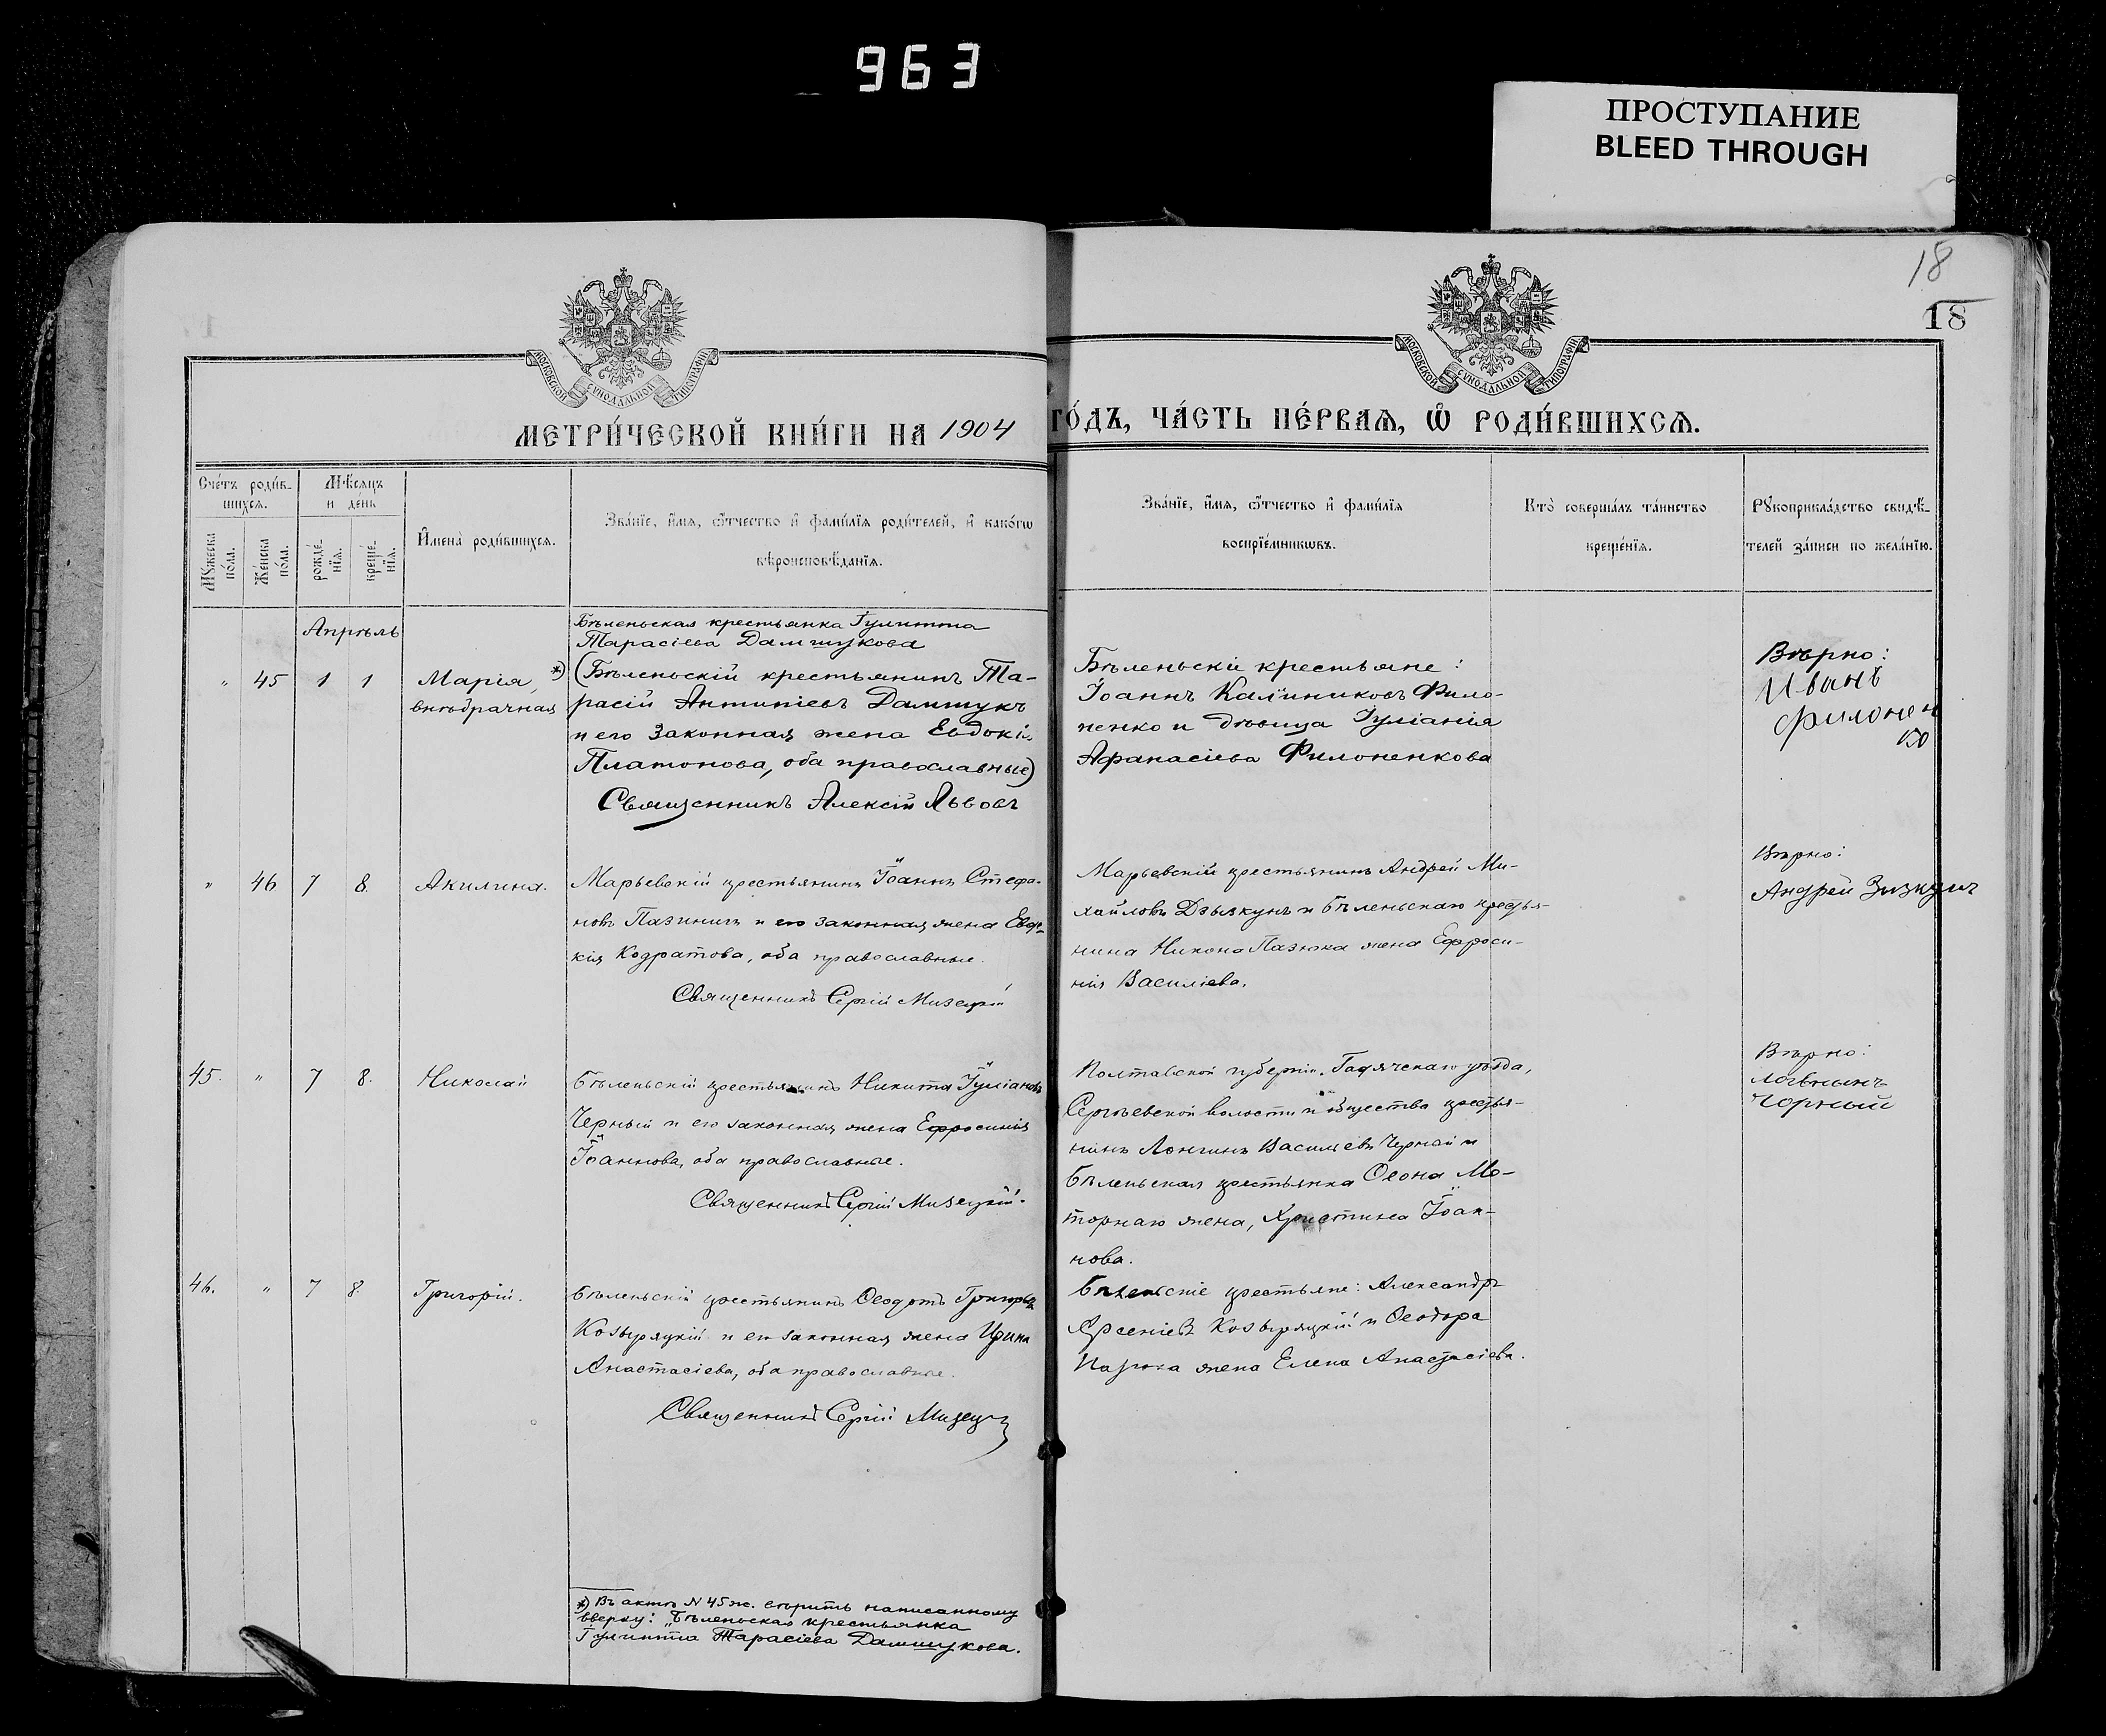 963
ПРОСТУПАНИЕ
BLEED THROUGH
18
18
МОСКОВСКОЙ СѴНОДАЛЬНОЙ ТИПОГРАФІИ
МОСКОВСКОЙ СѴНОДАЛЬНОЙ ТИПОГРАФІИ
МЕТРИ́ЧЕСКОЙ КНИ́ГИ НА 1904 ГО́ДЪ, ЧА́СТЬ ПЕ́РВАѦ, Ѽ РОДИ́ВШИХСѦ.
Сче́тъ роди́в-
шихсѧ.
Мꙋ́жеска по́ла.
Же́нска по́ла.
Мѣ́сѧцъ
и де́нь
рожде́-
нїѧ.
креще́-
нїѧ.
И҆мена̀ роди́вшихсѧ.
Зва́нїе, и҆́мѧ, ѻ҆́тчество и҆ фами́лїѧ роди́телей, и҆ како́гѡ
вѣроисповѣ́данїѧ.
Зва́нїе, и҆́мѧ, ѻ҆́тчество и҆ фами́лїѧ
воспрїе́мникѡвъ.
Кто̀ соверша́лъ та́инство
креще́нїѧ.
Рꙋкоприкла́дство свидѣ́-
телей за́писи по жела́нїю.
Апрѣль
Бѣленьская крестьянка Іулитта
Тарасіева Дамшукова
" 45 1 1 Марія, *)
внѣбрачная
(Бѣленьскій крестьянинъ Та-
расій Антипіевъ Дамшукъ
и его законная жена Евдокія
Платонова, оба православные)
Священникъ Алексій Львовъ
Бѣленьскіе крестьяне:
Іоаннъ Калиниковъ Фило-
ненко и дѣвица Іуліанія
Афанасіева Филоненкова
Вѣрно:
Иванъ
Филонен
ко
" 46 7 8 Акилина.
Марьевскій крестьянинъ Іоаннъ Стефа-
новъ и его законная жена Евдо-
кія Кодратова, оба православные.
Священникъ Сергій Мизецкій
Марьевскій крестьянинъ Андрей Ми-
хайловъ Дзызкунъ и Бѣленьскаго крестья-
нина Никона Пазюка жена Ефроси-
нія Василіева.
Вѣрно:
Андрей
45. " 7 8. Николай
Бѣленьскій крестьянинъ Никита Іуліановъ
Черный и его законная жена Ефросинія
Іоаннова, оба православные.
Священникъ Сергій Мизецкій.
Полтавской губерніи, Гадячскаго уѣзда,
Сергѣевской волости и общества крестья-
нинъ Лонгинъ Василіевъ Черный и
Бѣленьская крестьянка Ѳеона Мо-
торнаго жена, Христина Іоан-
нова.
Вѣрно:
Логвинъ
Чорный
46. " 7 8 Григорій.
Бѣленьскій крестьянинъ Ѳеодотъ Григорьевъ
Козыряцкій и его законная жена Ирина
Анастасіева, оба православные.
Священникъ Сергій Мизецкій
Бѣленьскіе крестьяне: Александръ
Арсеніевъ Козыряцкій и Ѳеодора
жена Елена Анастасіева.
*) Въ актѣ N 45 ж. вѣрить написанному
вверху: "Бѣленьская крестьянка
Іулитта Тарасіева Дамшукова.